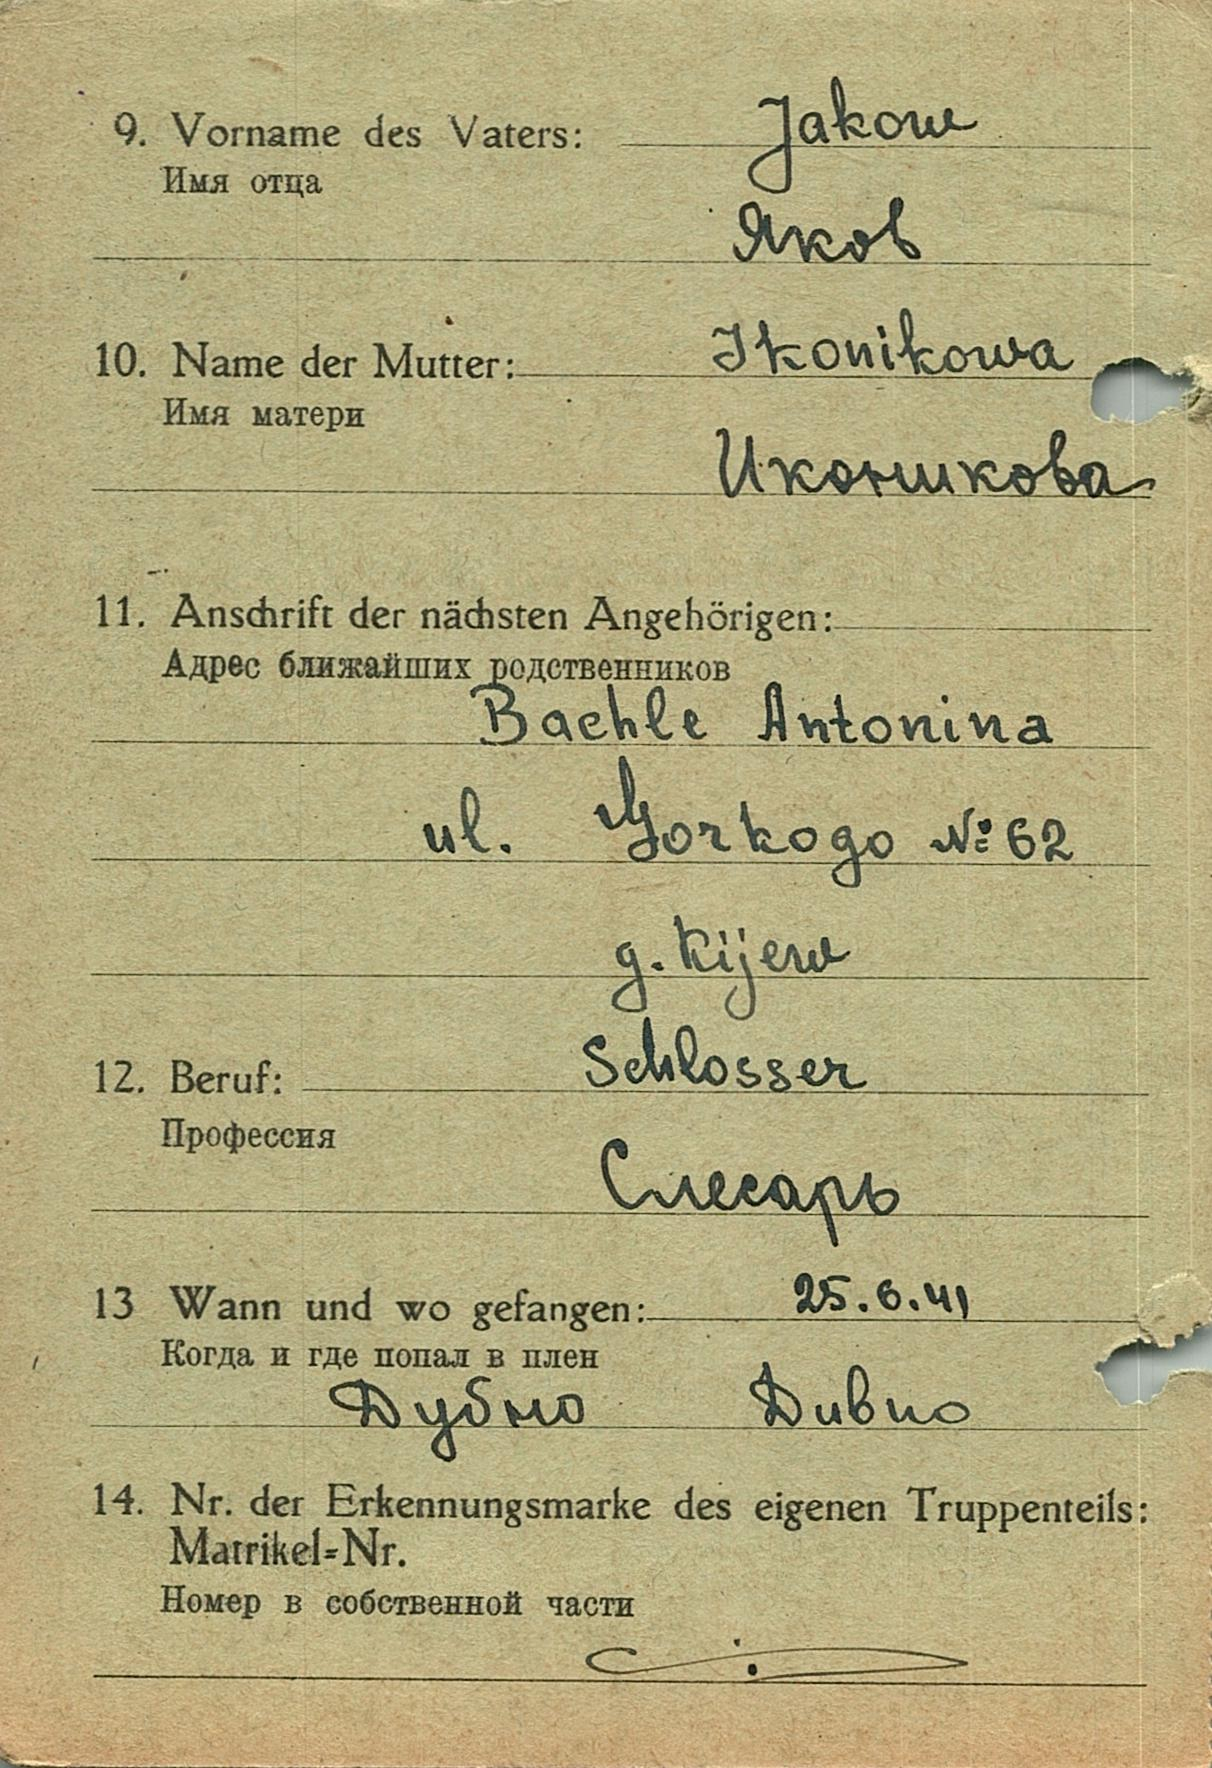 9. Vorname des Vaters: Jakow
Имя отца
Яков
10. Name der Mutter: Ikonikowa
Имя матери
Иконикова
11. Anschrift der nächsten Angehörigen:
Адрес ближайших родственников
Bachle Antonina
ul. Gorkogo №: 62
g. Kijew
12. Beruf: Schlosser
Профессия
Слесарь
13 Wann und wo gefangen: 25.6.41
Когда и где попал в плен
Дубно Дивно
14. Nr. der Erkennungsmarke des eigenen Truppenteils:
Matrikel=Nr.
Номер в собственной части